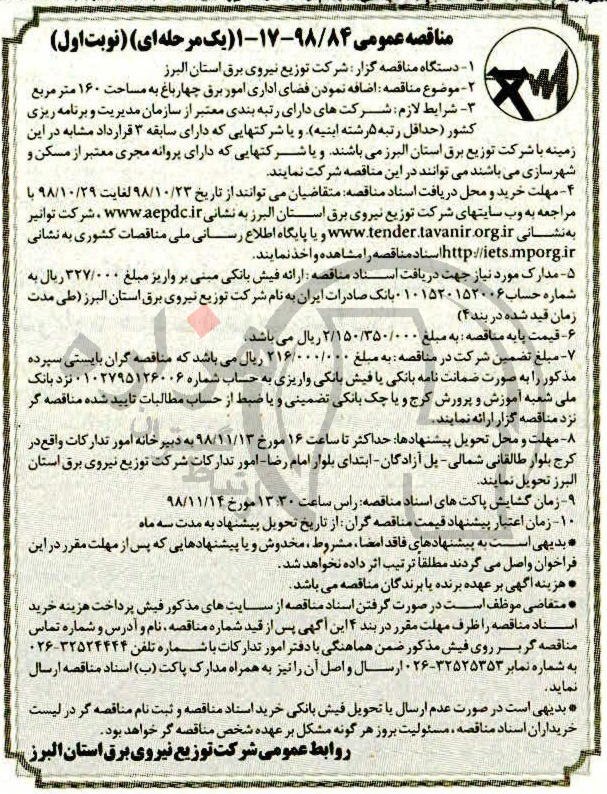 مناقصه عمومی ۹۸/۸۴-۱۷-۱ (یک مرحله ای) (نوبت اول)
۱- دستگاه مناقصه گزار: شرکت توزیع نیروی برق استان البرز
۲- موضوع مناقصه: اضافه نمودن فضای اداری امور برق چهارباغ به مساحت ۱۶۰ متر مربع
۳- شرایط لازم: شرکت های دارای رتبه بندی معتبر از سازمان مدیریت و برنامه ریزی
کشور (حداقل رتبه ۵ رشته ابنیه). و یا شرکتهایی که دارای سابقه ۳ قرارداد مشابه در این
زمینه با شرکت توزیع برق استان البرز می باشند. و یا شرکتهایی که دارای پروانه مجری معتبر از مسکن و
شهرسازی می باشند می توانند در این مناقصه شرکت نمایند.
۴- مهلت خرید و محل دریافت اسناد مناقصه: متقاضیان می توانند از تاریخ ۹۸/۱۰/۲۳ لغایت ۹۸/۱۰/۲۹ با
مراجعه به وب سایتهای شرکت توزیع نیروی برق استان البرز به نشانی www.aepdc.ir، شرکت توانیر
به نشانی www.tender.tavanir.org.ir و یا پایگاه اطلاع رسانی ملی مناقصات کشوری به نشانی
http://iets.mporg.ir اسناد مناقصه را مشاهده و اخذ نمایند.
۵- مدارک مورد نیاز جهت دریافت اسناد مناقصه: ارائه فیش بانکی مبنی بر واریز مبلغ ۳۲۷/۰۰۰ ریال به
شماره حساب ۰۱۰۱۵۲۰۱۵۲۰۰۶ بانک صادرات ایران به نام شرکت توزیع نیروی برق استان البرز (طی مدت
زمان قید شده در بند ۴)
۶- قیمت پایه مناقصه: به مبلغ ۲/۱۵۰/۳۵۰/۰۰۰ ریال می باشد.
۷- مبلغ تضمین شرکت در مناقصه: به مبلغ ۲۱۶/۰۰۰/۰۰۰ ریال می باشد که مناقصه گران بایستی سپرده
مذکور را به صورت ضمانت نامه بانکی یا فیش بانکی واریزی به حساب شماره ۰۱۰۲۷۹۵۱۲۶۰۰۶ نزد بانک
ملی شعبه آموزش و پرورش کرج و یا چک بانکی تضمینی و یا ضبط از حساب مطالبات تایید شده مناقصه گر
نزد مناقصه گزار ارائه نمایند.
۸- مهلت و محل تحویل پیشنهادها: حداکثر تا ساعت ۱۶ مورخ ۹۸/۱۱/۱۳ به دبیرخانه امور تدارکات واقع در
کرج بلوار طالقانی شمالی- پل آزادگان- ابتدای بلوار امام رضا- امور تدارکات شرکت توزیع نیروی برق استان
البرز تحویل نمایند.
۹- زمان گشایش پاکت های اسناد مناقصه: راس ساعت ۱۳:۳۰ مورخ ۹۸/۱۱/۱۴
۱۰- زمان اعتبار پیشنهاد قیمت مناقصه گران: از تاریخ تحویل پیشنهاد به مدت سه ماه
* بدیهی است به پیشنهادهای فاقد امضا، مشروط، مخدوش و یا پیشنهادهایی که پس از مهلت مقرر در این
فراخوان واصل می گردند مطلقا ترتیب اثر داده نخواهد شد.
* هزینه آگهی بر عهده برنده یا برندگان مناقصه می باشد.
* متقاضی موظف است در صورت گرفتن اسناد مناقصه از سایت های مذکور فیش پرداخت هزینه خرید
اسناد مناقصه را ظرف مهلت مقرر در بند ۴ این آگهی پس از قید شماره مناقصه، نام و آدرس و شماره تماس
مناقصه گر بر روی فیش مذکور ضمن هماهنگی با دفتر امور تدارکات با شماره تلفن ۳۲۵۲۴۴۲۴-۰۲۶
به شماره نمابر ۳۲۵۲۵۳۵۳-۰۲۶ ارسال و اصل آن را نیز به همراه مدارک پاکت (ب) اسناد مناقصه ارسال
نماید.
* بدیهی است در صورت عدم ارسال یا تحویل فیش بانکی خرید اسناد مناقصه و ثبت نام مناقصه گر در لیست
خریداران اسناد مناقصه، مسئولیت بروز هر گونه مشکل بر عهده شخص مناقصه گر خواهد بود.
روابط عمومی شرکت توزیع نیروی برق استان البرز